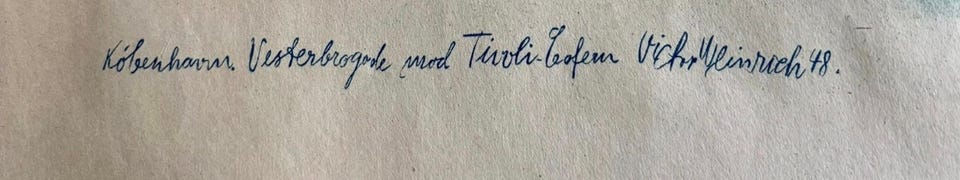 København. Vesterbrogade mod Tivoli- Victor Heinrich 48.